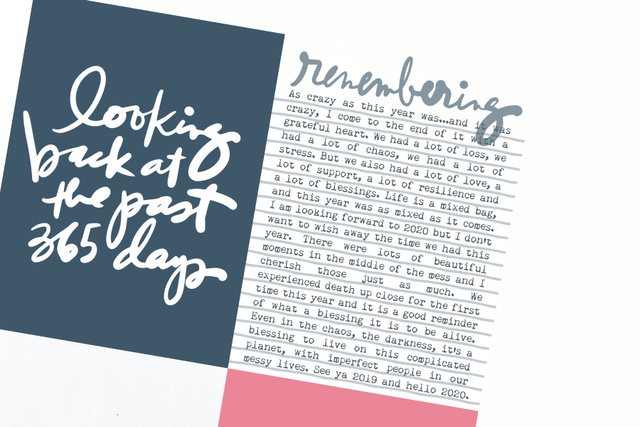 looking
back at
the past
365 days
remembering
As crazy as this year was...and it was
crazy, I come to the end of it with a
grateful heart. We had a lot of loss, we
had a lot of chaos, we had a lot of
stress. But we also had a lot of love, a
lot of support, a lot of resilience and
a lot of blessings. Life is a mixed bag,
and this year was as mixed as it comes.
I am looking forward to 2020 but I don't
want to wish away the time we had this
year. There were lots of beautiful
moments in the middle of the mess and I
cherish those just as much. We
experienced death up close for the first
time this year and it is a good reminder
of what a blessing it is to be alive.
Even in the chaos, the darkness, it's a
blessing to live on this complicated
planet, with imperfect people in our
messy lives. See ya 2019 and hello 2020.